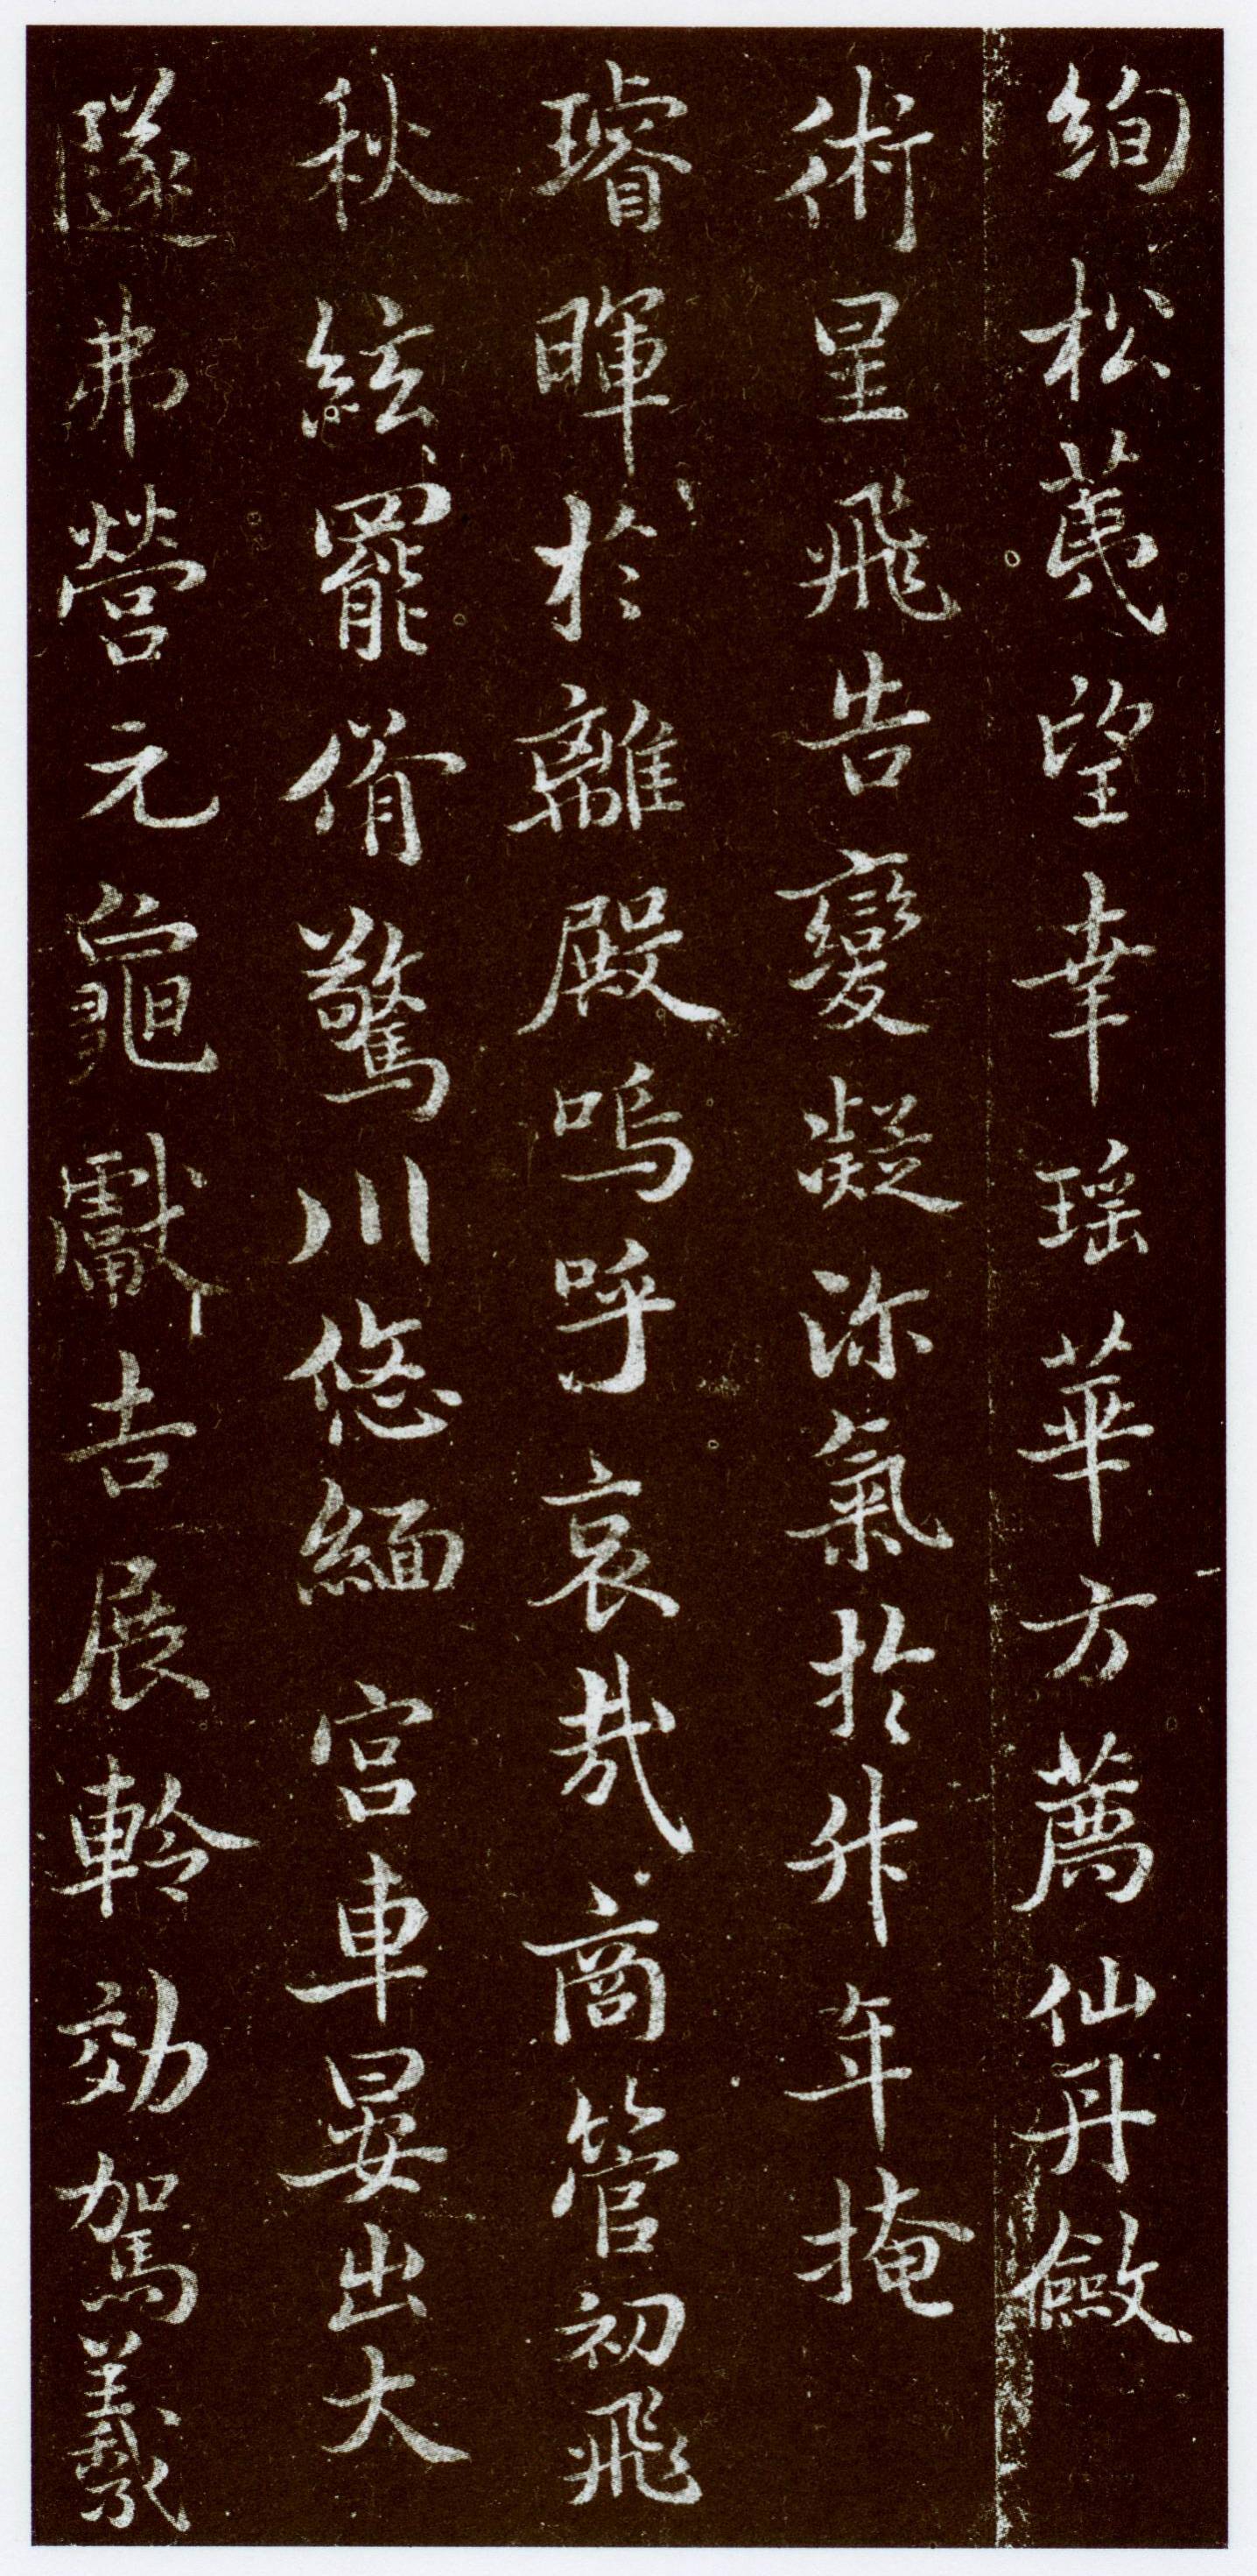 絢松荑望幸瑤華方薦仙丹斂
術星飛告變凝沴氣於升年掩
璿暉於離殿嗚呼哀哉商管初飛
秋絃罷脩驚川悠緬宮車晏出大
隧弗營元龜獻吉展軨効駕羲